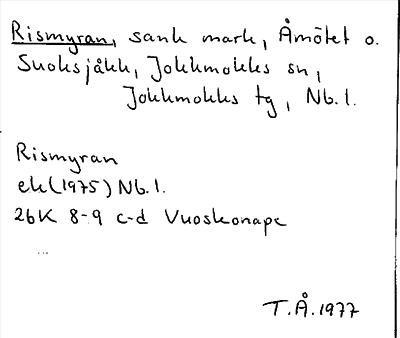 Rismyran, sank mark, Åmötet o.
Suoksjåkk, Jokkmokks sn,
Jokkmokks tg, Nb.l.
Rismyran
ek(1975) Nb.l.
26K 8-9 c-d Vuoskonape
...
T.Å.1977